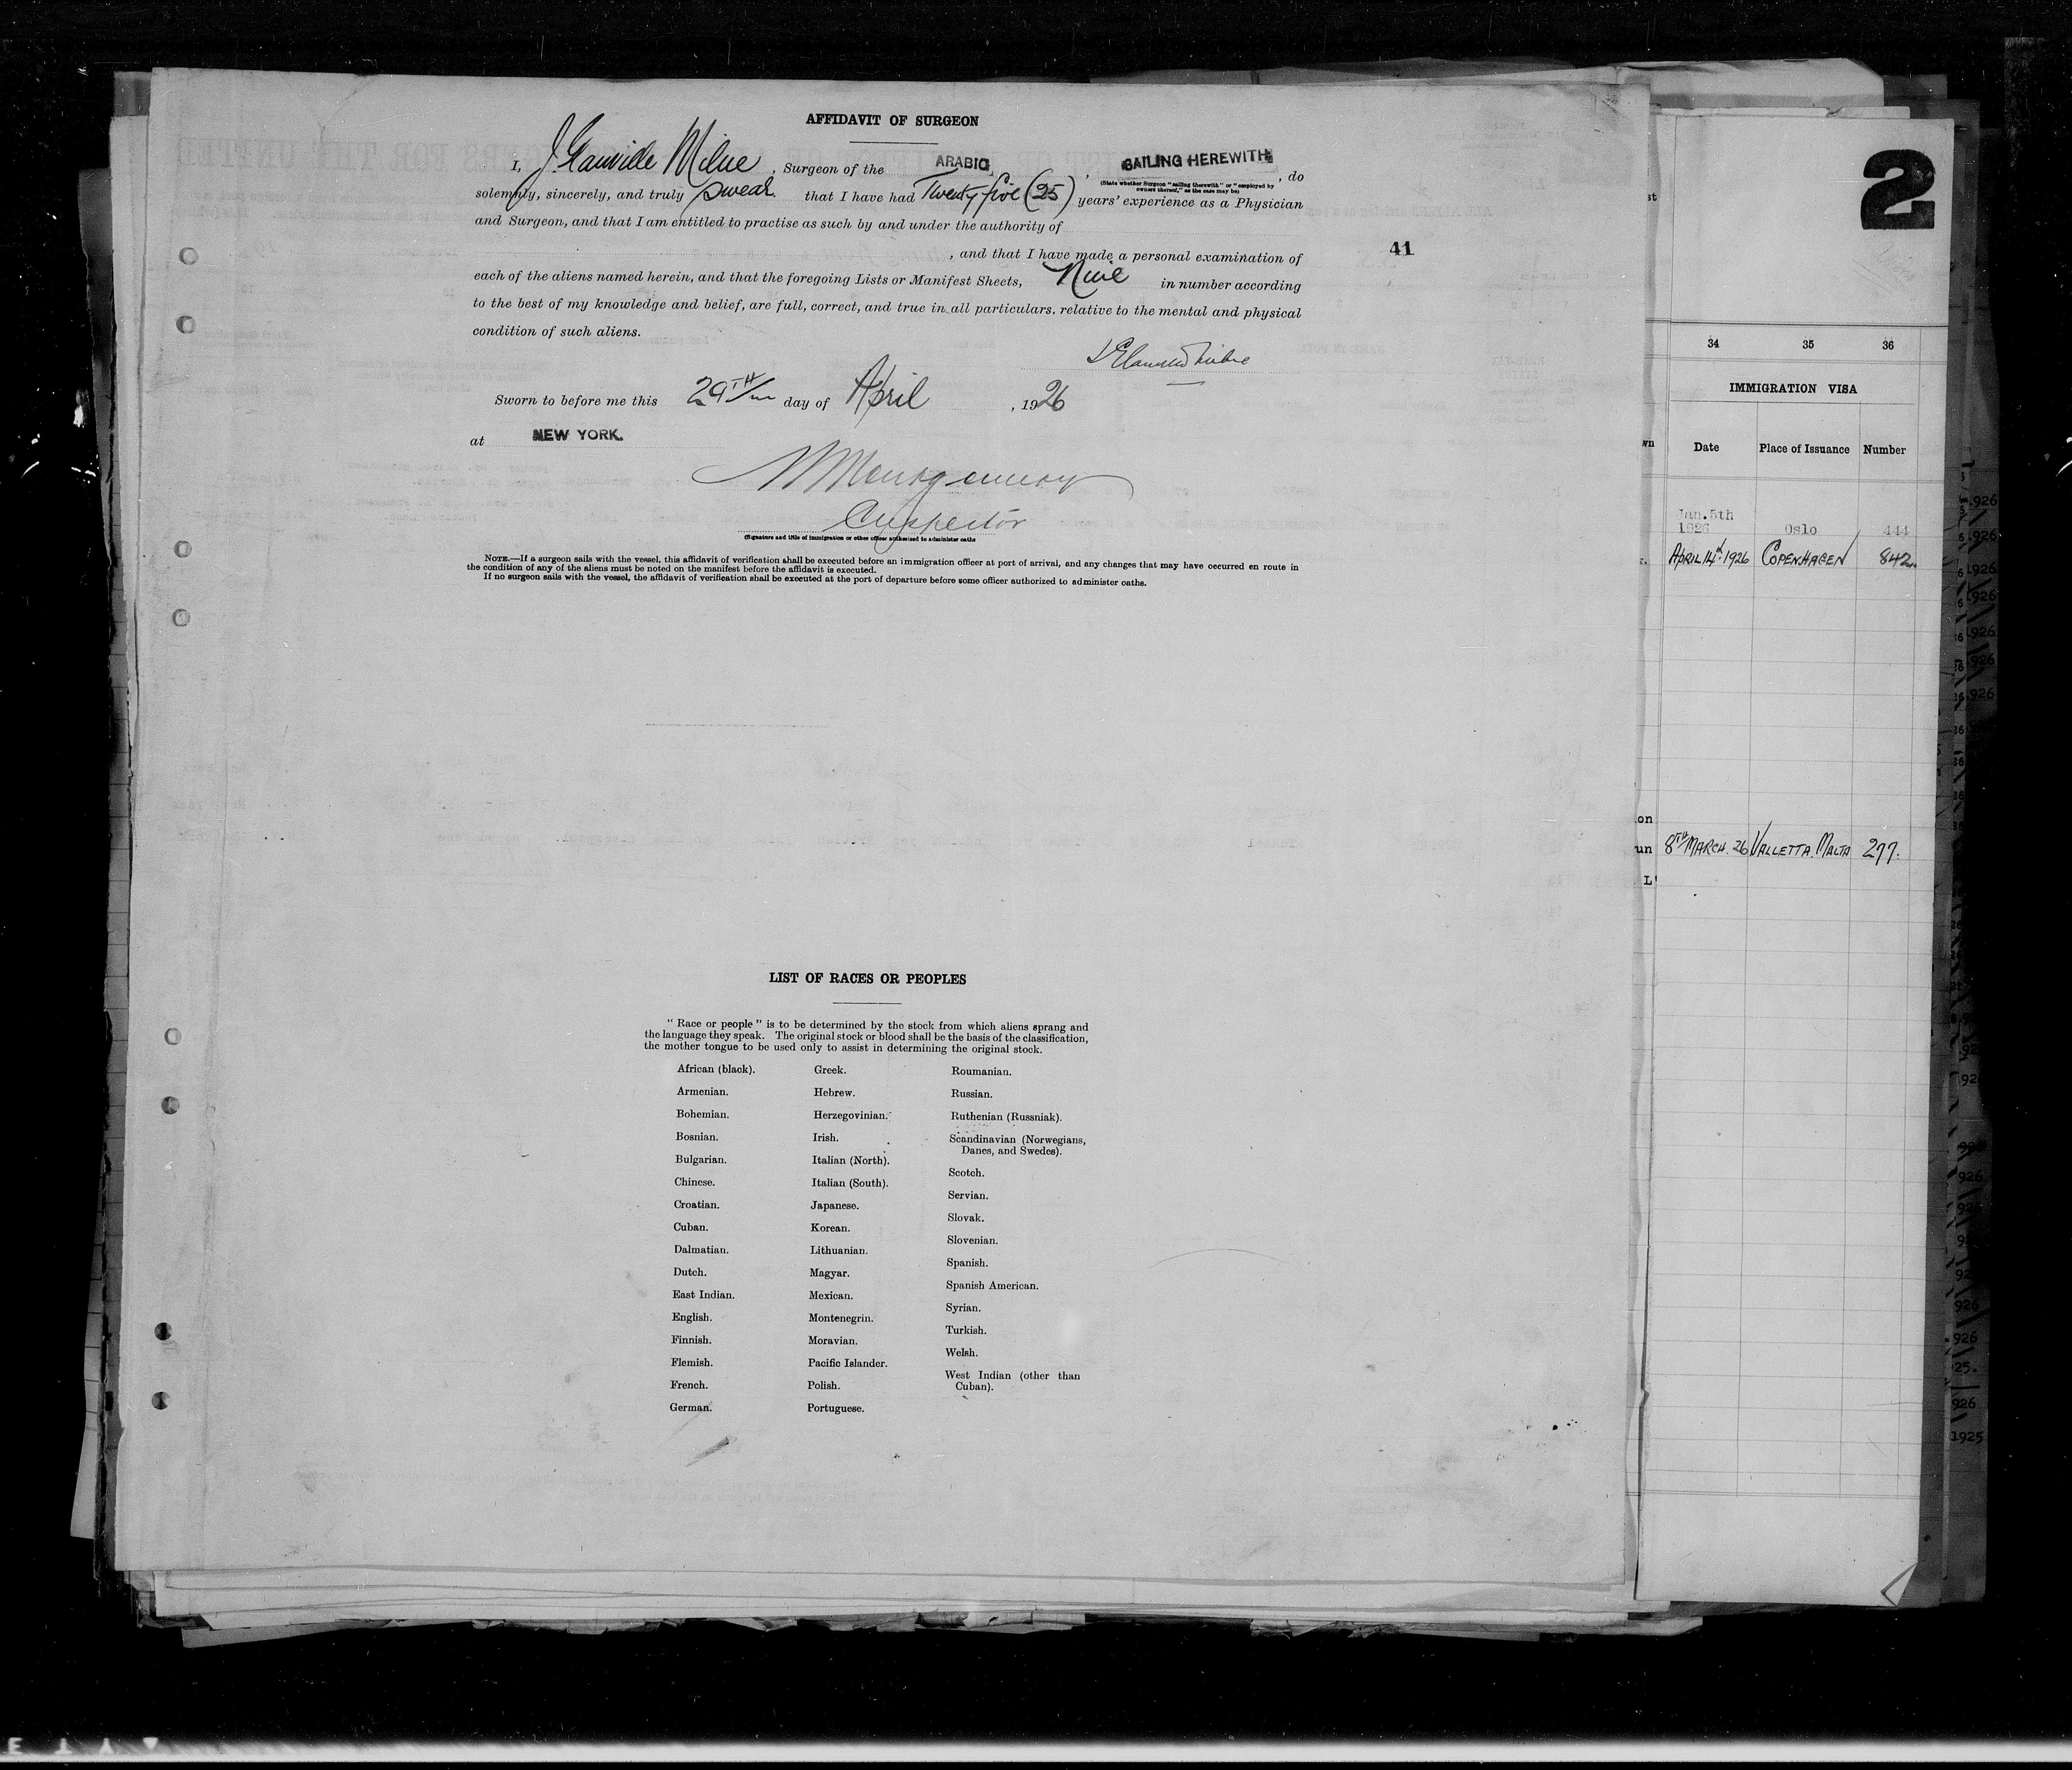 AFFIDAVIT OF SURGEON
I, J. Glanville Milne, Surgeon of the ARABIC, SAILING HEREWITH, do
(State whether Surgeon "sailing therewith" or "employed by
owners thereof," as the case may be)
solemnly, sincerely, and truly swear that I have had Twenty five (25) years' experience as a Physician
and Surgeon, and that I am entitled to practise as such by and under the authority of
, and that I have made a personal examination of
41
each of the aliens named herein, and that the foregoing Lists or Manifest Sheets, Nine in number according
to the best of my knowledge and belief, are full, correct, and true in all particulars. relative to the mental and physical
condition of such aliens.
Sworn to before me this 29TH day of April, 1926
at NEW YORK.
Montgomery
Inspector
(Signature and title of immigration or other officer authorised to administer oaths
NOTE.—If a surgeon sails with the vessel, this affidavit of verification shall be executed before an immigration officer at port of arrival, and any changes that may have occurred en route in
the condition of any of the aliens must be noted on the manifest before the affidavit is executed.
If no surgeon sails with the vessel, the affidavit of verification shall be executed at the port of departure before some officer authorized to administer oaths.
LIST OF RACES OR PEOPLES
"Race or people" is to be determined by the stock from which aliens sprang and
the language they speak. The original stock or blood shall be the basis of the classification,
the mother tongue to be used only to assist in determining the original stock.
African (black).
Armenian.
Bohemian.
Bosnian.
Bulgarian.
Chinese.
Croatian.
Cuban.
Dalmatian.
Dutch.
East Indian.
English.
Finnish.
Flemish.
French.
German.
Greek.
Hebrew.
Herzegovinian.
Irish.
Italian (North).
Italian (South).
Japanese.
Korean.
Lithuanian.
Magyar.
Mexican.
Montenegrin.
Moravian.
Pacific Islander.
Polish.
Portuguese.
Roumanian.
Russian.
Ruthenian (Russniak).
Scandinavian (Norwegians,
Danes, and Swedes).
Scotch.
Servian.
Slovak.
Slovenian.
Spanish.
Spanish American.
Syrian.
Turkish.
Welsh.
West Indian (other than
Cuban).
2
34 35 36
IMMIGRATION VISA
Date Place of Issuance Number
Jan.5th
1926 Oslo 444
APRIL 14th 1926 COPENHAGEN 842.
8TH MARCH. 26 VALLETTA. MALTA 277.